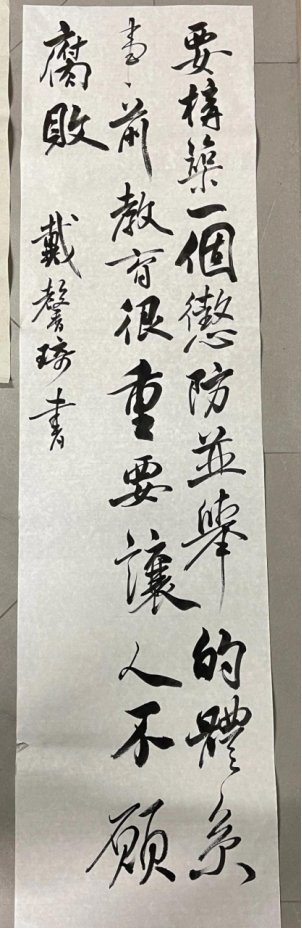 要構築一個懲防並舉的體系
事前教育很重要讓人不願
腐敗
戴馨琦書